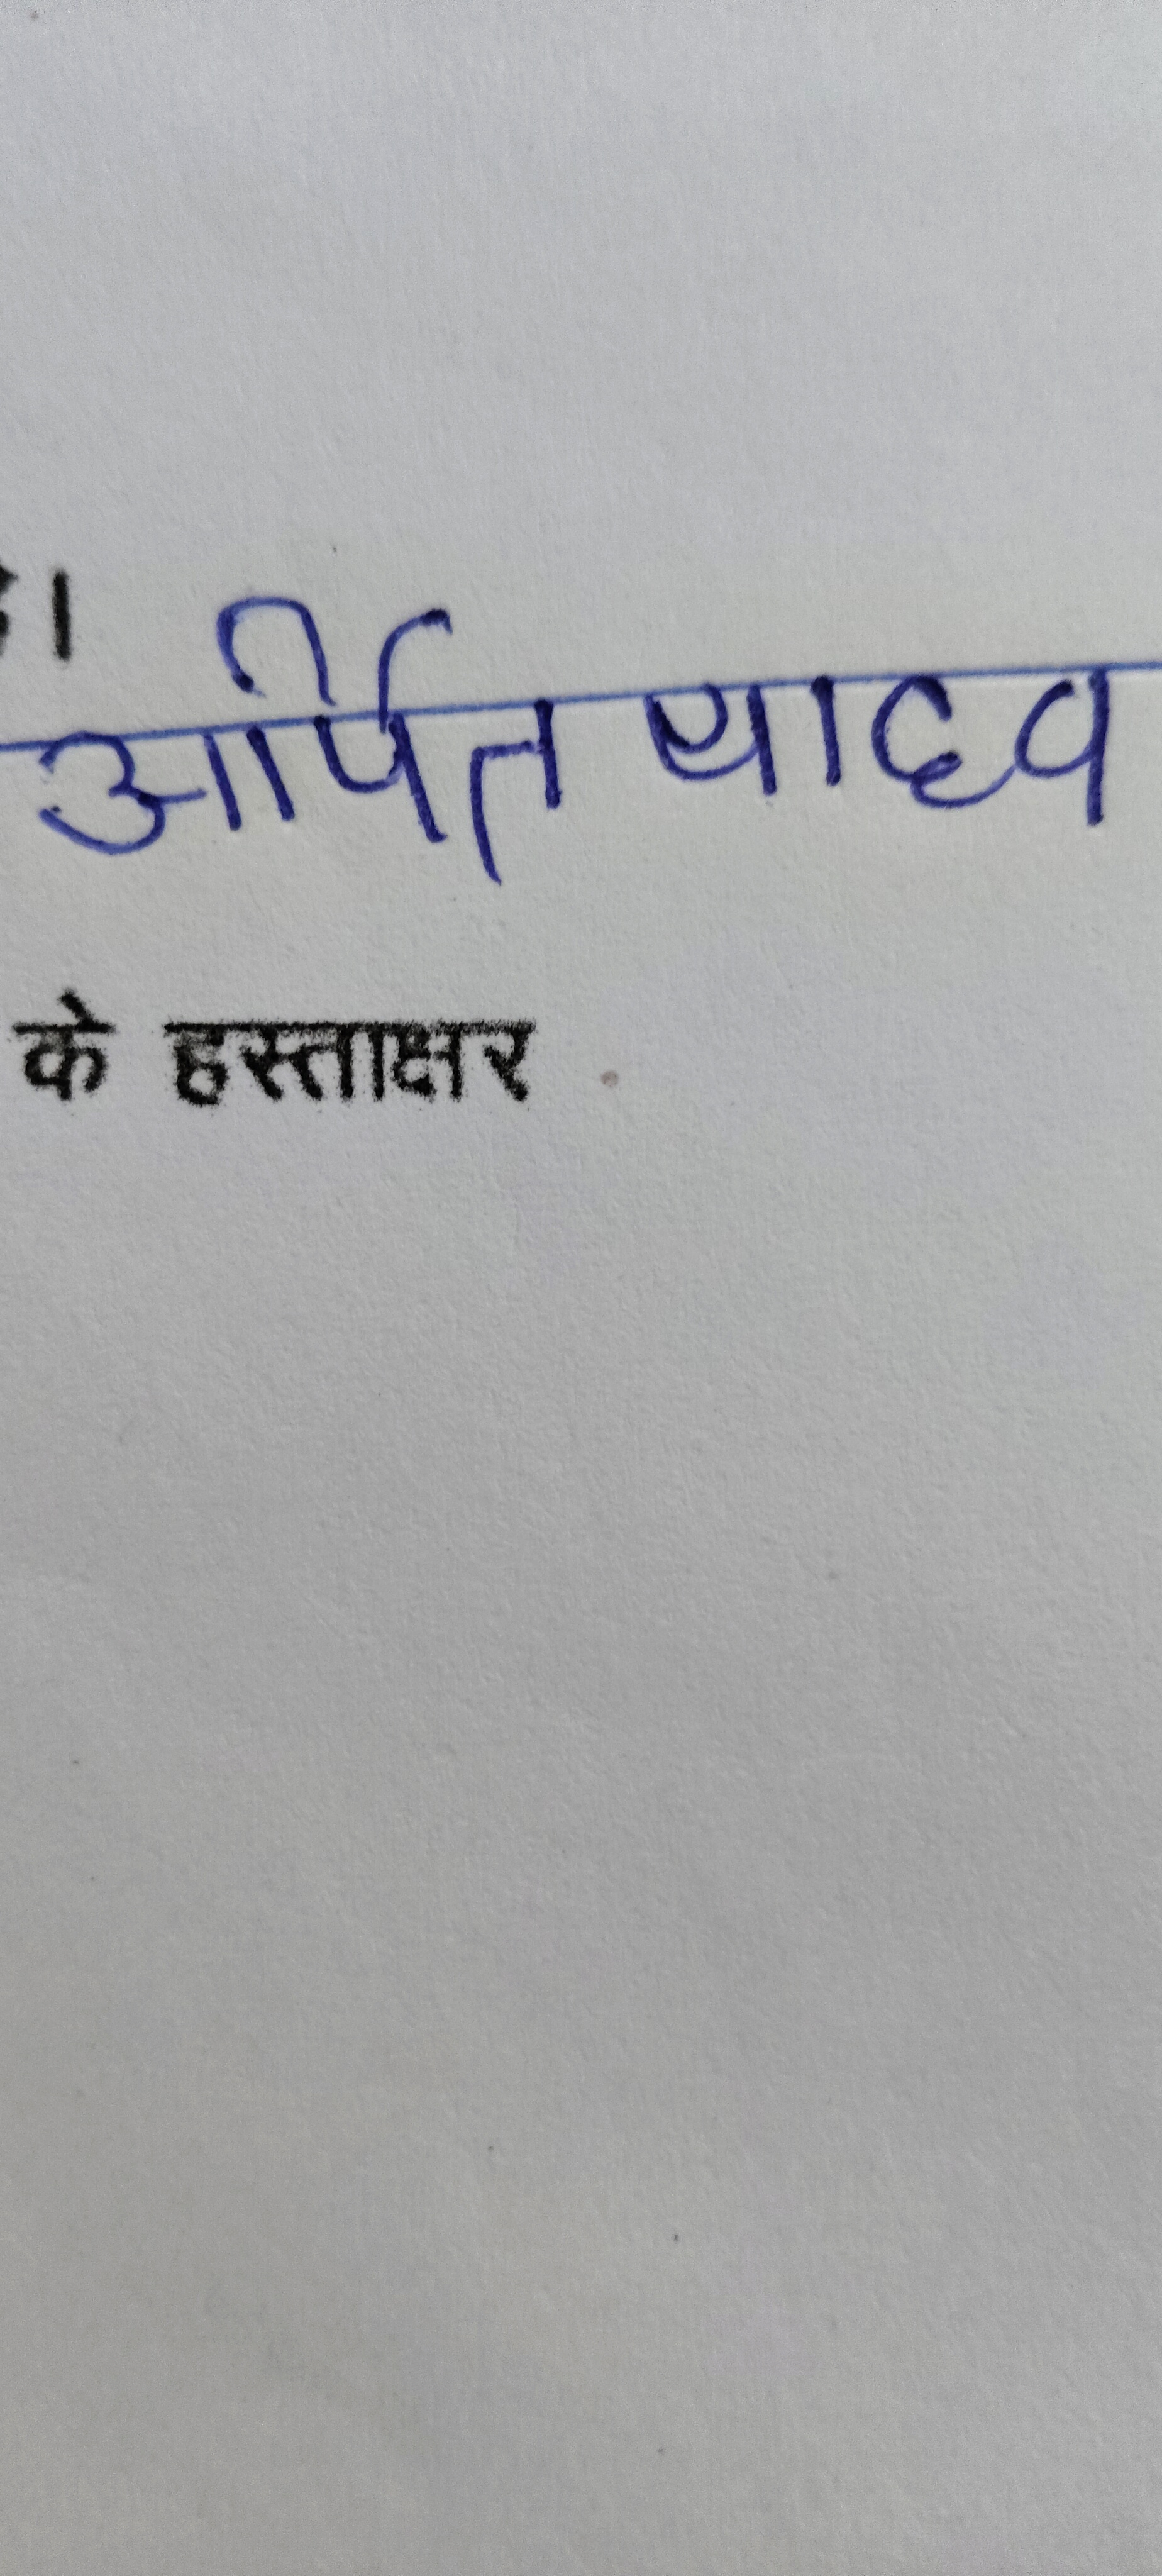 ।
अर्पित यादव
के हस्ताक्षर